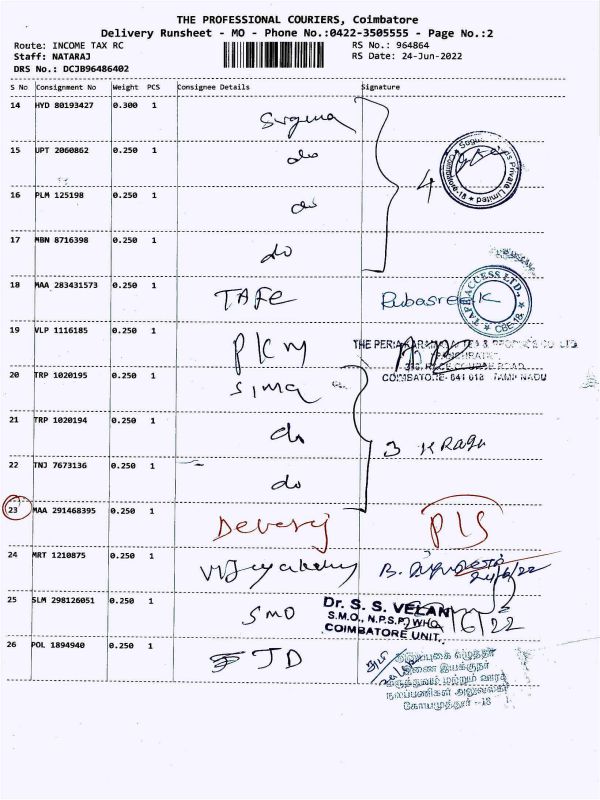 THE PROFESSIONAL COURIERS, Coimbatore
Delivery Runsheet - MO - Phone No.:0422-3505555 - Page No.:2
Route: INCOME TAX RC RS No.: 964864
Staff: NATARAJ RS Date: 24-Jun-2022
DRS No.: DCJB96486402
S No Consignment No Weight PCS Consignee Details Signature
14 HYD 80193427 0.300 1
15 UPT 2060862 0.250 1 do
16 PLM 125198 0.250 1 do 4
17 MBN 8716398 0.250 1 do
18 MAA 283431573 0.250 1 TAFE Rubasree K
TAFE ACCESS LTD. CBE-18
19 VLP 1116185 0.250 1 PKM
COIMBATORE-641 018 TAMIL NADU
20 TRP 1020195 0.250 1 Sima
21 TRP 1020194 0.250 1 do 3 K Ragu
22 TNJ 7673136 0.250 1 do
23 MAA 291468395 0.250 1 Devaraj PLS
24 MRT 1210875 0.250 1 B.
24/6/22
25 SLM 298126051 0.250 1 SMO
Dr. S. S. VELAN
S.M.O., N.P.S.P, WHO
COIMBATORE UNIT.
26 POL 1894940 0.250 1 JD
இணை இயக்குநர்
மருத்துவம் மற்றும் ஊரக
நலப்பணிகள் அலுவலகம்
கோயமுத்தூர் -18